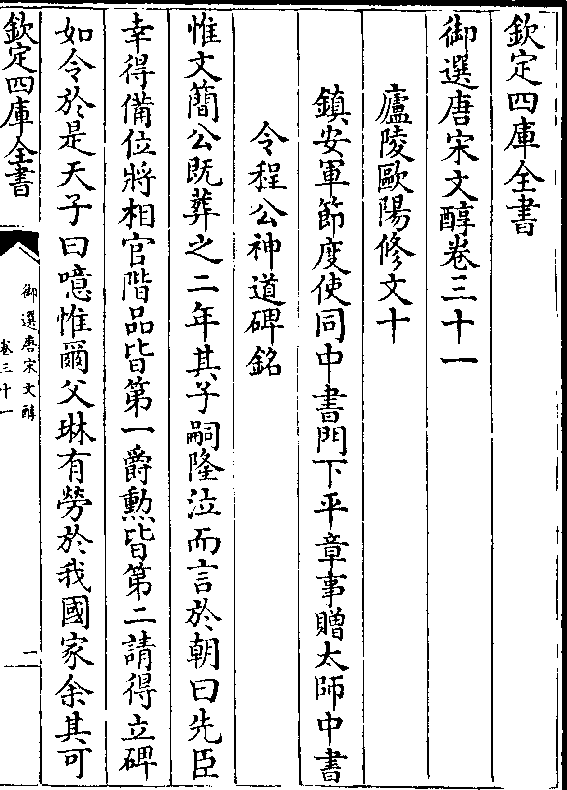 欽定四庫全書
御選唐宋文醇卷三十一
廬陵歐陽修文十
鎮安軍節度使同中書門下平章事贈太師中書
令程公神道碑銘
惟文簡公既葬之二年其子嗣隆泣而言於朝曰先臣
幸得備位將相官階品皆第一爵勲皆第二請得立碑
如令於是天子曰噫惟爾父琳有勞於我國家余其可
欽定四庫全書
御選唐宋文醇
卷三十一
二